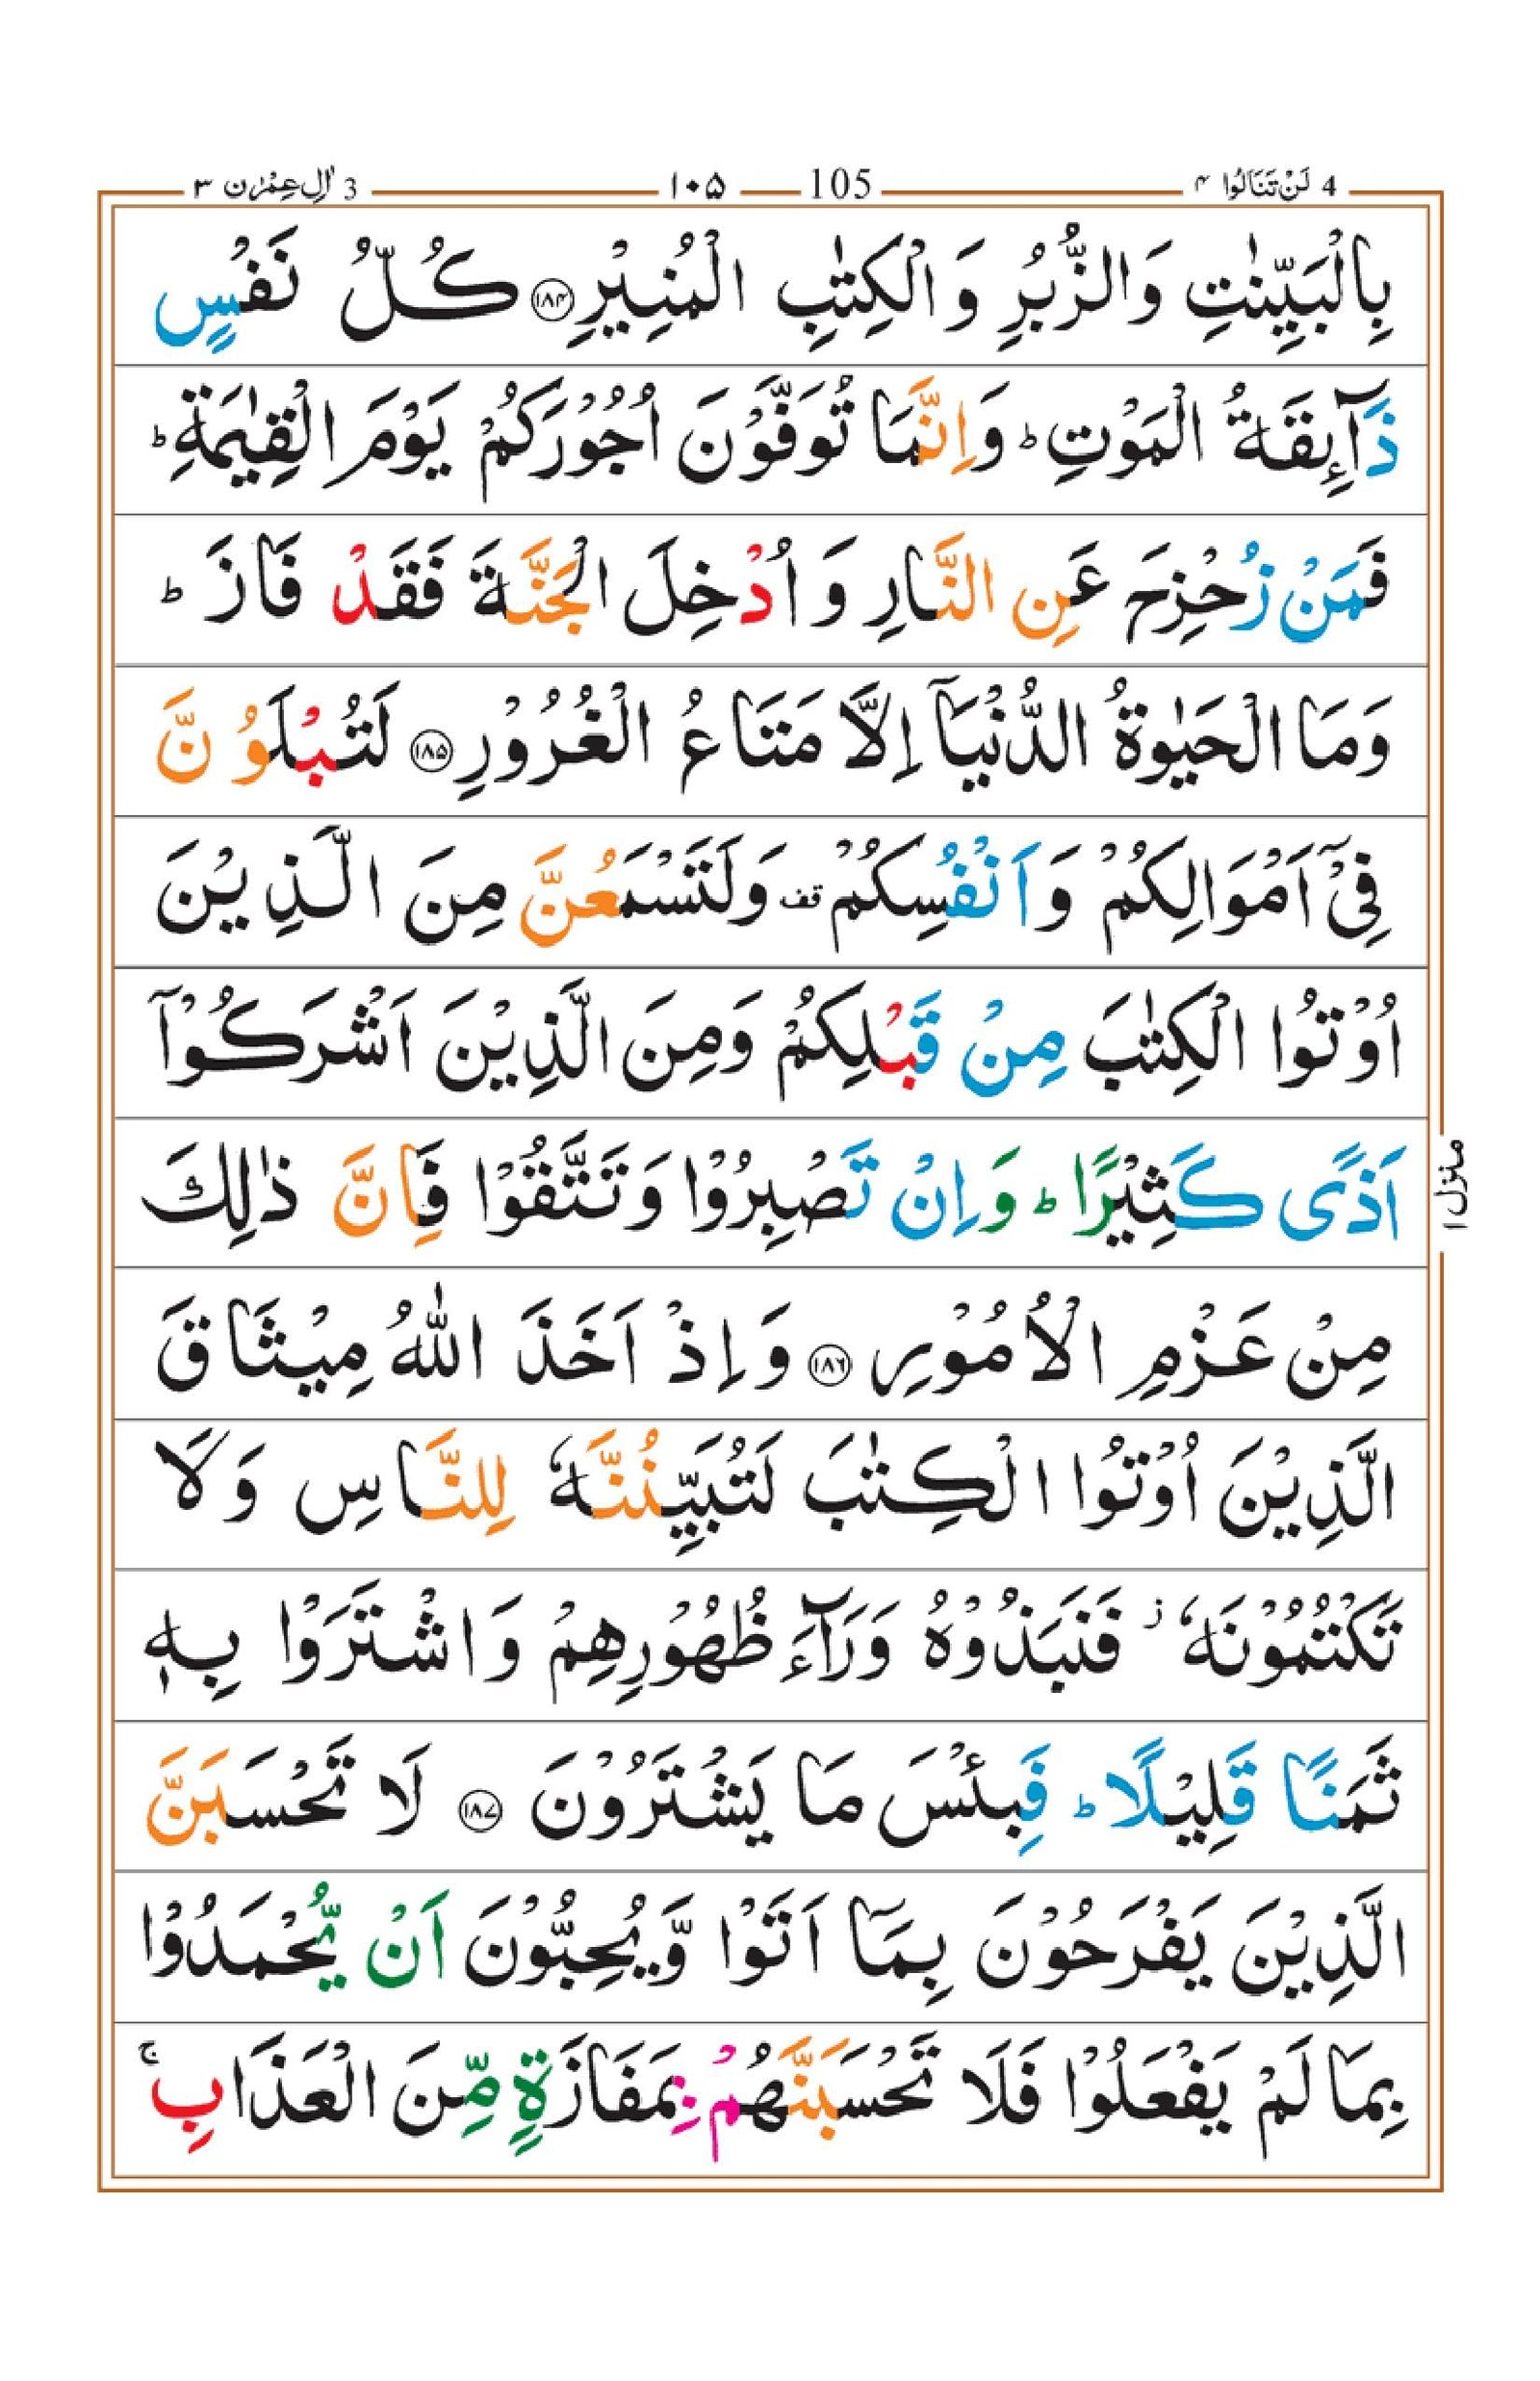 4 لَنْ تَنَالُوا ۴
105 ۱۰۵
3 اٰلِ عِمْرٰن ۳
بِالْبَيِّنٰتِ وَالزُّبُرِ وَالْكِتٰبِ الْمُنِيْرِ ۱۸۴ كُلُّ نَفْسٍ
ذَآئِقَةُ الْمَوْتِ ؕ وَاِنَّمَا تُوَفَّوْنَ اُجُوْرَكُمْ يَوْمَ الْقِيٰمَةِ ؕ
فَمَنْ زُحْزِحَ عَنِ النَّارِ وَاُدْخِلَ الْجَنَّةَ فَقَدْ فَازَ ؕ
وَمَا الْحَيٰوةُ الدُّنْيَآ اِلَّا مَتَاعُ الْغُرُوْرِ ۱۸۵ لَتُبْلَوُنَّ
فِيْٓ اَمْوَالِكُمْ وَاَنْفُسِكُمْ قف وَلَتَسْمَعُنَّ مِنَ الَّذِيْنَ
اُوْتُوا الْكِتٰبَ مِنْ قَبْلِكُمْ وَمِنَ الَّذِيْنَ اَشْرَكُوْٓا
اَذًى كَثِيْرًا ؕ وَاِنْ تَصْبِرُوْا وَتَتَّقُوْا فَاِنَّ ذٰلِكَ
مِنْ عَزْمِ الْاُمُوْرِ ۱۸۶ وَاِذْ اَخَذَ اللّٰهُ مِيْثَاقَ
الَّذِيْنَ اُوْتُوا الْكِتٰبَ لَتُبَيِّنُنَّهٗ لِلنَّاسِ وَلَا
تَكْتُمُوْنَهٗ ز فَنَبَذُوْهُ وَرَآءَ ظُهُوْرِهِمْ وَاشْتَرَوْا بِهٖ
ثَمَنًا قَلِيْلًا ؕ فَبِئْسَ مَا يَشْتَرُوْنَ ۱۸۷ لَا تَحْسَبَنَّ
الَّذِيْنَ يَفْرَحُوْنَ بِمَآ اَتَوْا وَّيُحِبُّوْنَ اَنْ يُّحْمَدُوْا
بِمَا لَمْ يَفْعَلُوْا فَلَا تَحْسَبَنَّهُمْ بِمَفَازَةٍ مِّنَ الْعَذَابِ ۚ
منزل ۱